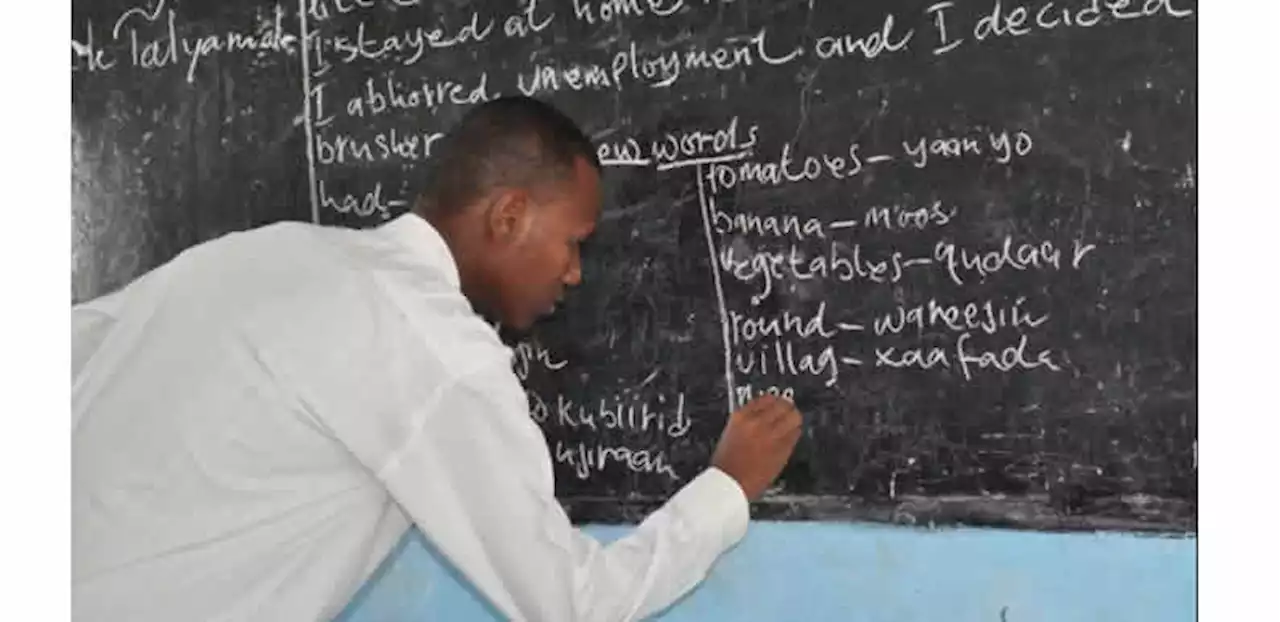 Talyamate
I stayed at home
I abhorred unemployment and I decided
brusher
new words
had-
tomatoes - yaanyo
banana - moos
vegetables - qudaar
round - wareesin
villag - xaafada
kubiirid
ujiraan